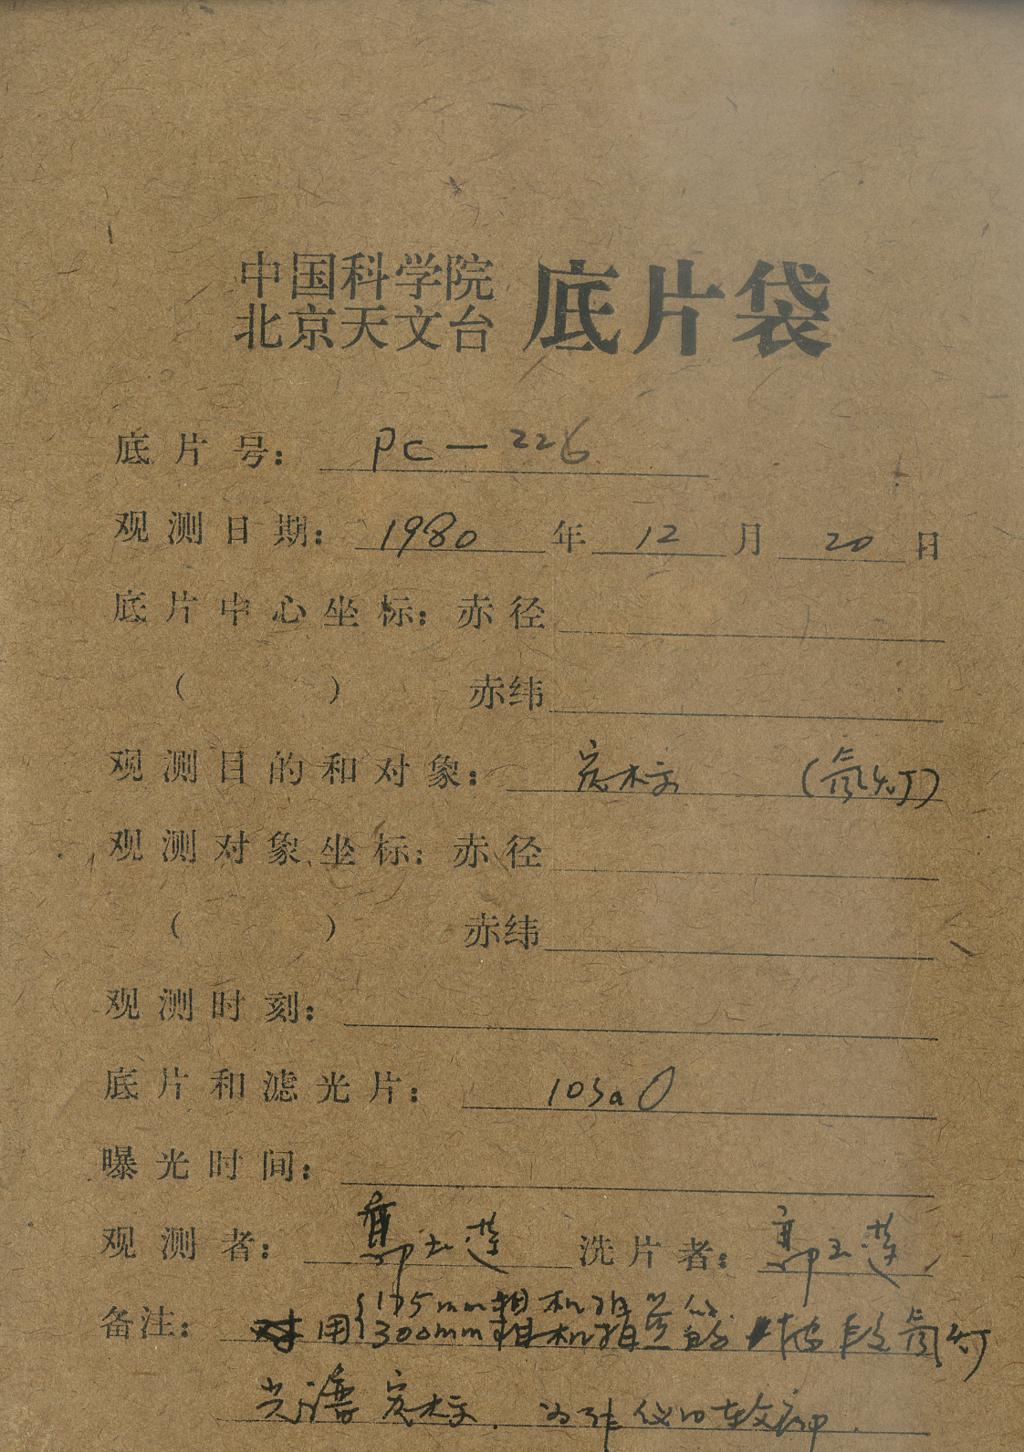 中国科学院
北京天文台 底片袋
底片号: PC—226
观测日期: 1980 年 12 月 20 日
底片中心坐标: 赤径
( ) 赤纬
观测目的和对象: 定标 (氘灯)
观测对象坐标: 赤径
( ) 赤纬
观测时刻:
底片和滤光片: 103aO
曝光时间:
观测者: 郭玉莲 洗片者: 郭玉莲
备注: 对用 175mm相机
300mm相机 段氘灯
光谱定标.